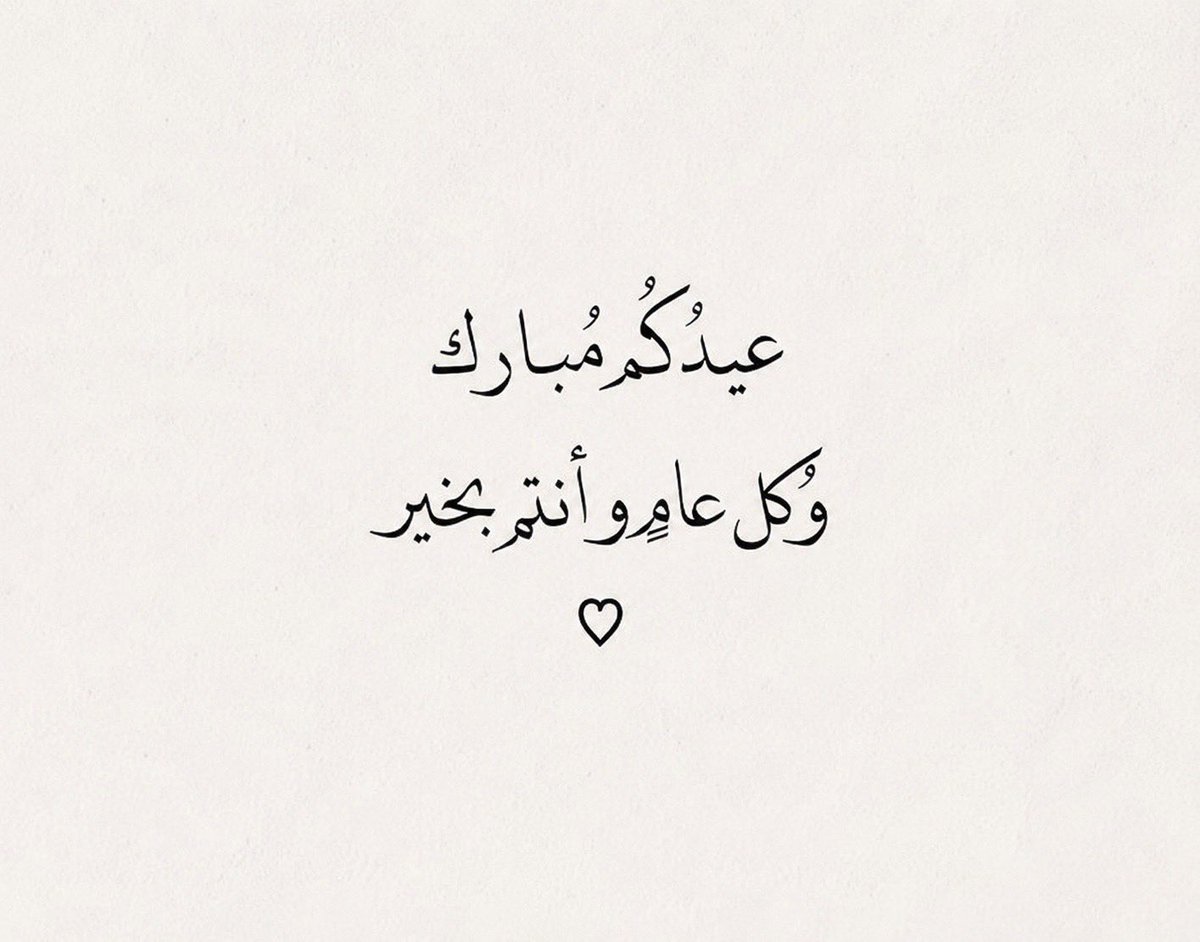 عيدُكُم مُبارك
وُكل عامٍ و أنتم بخير
♡